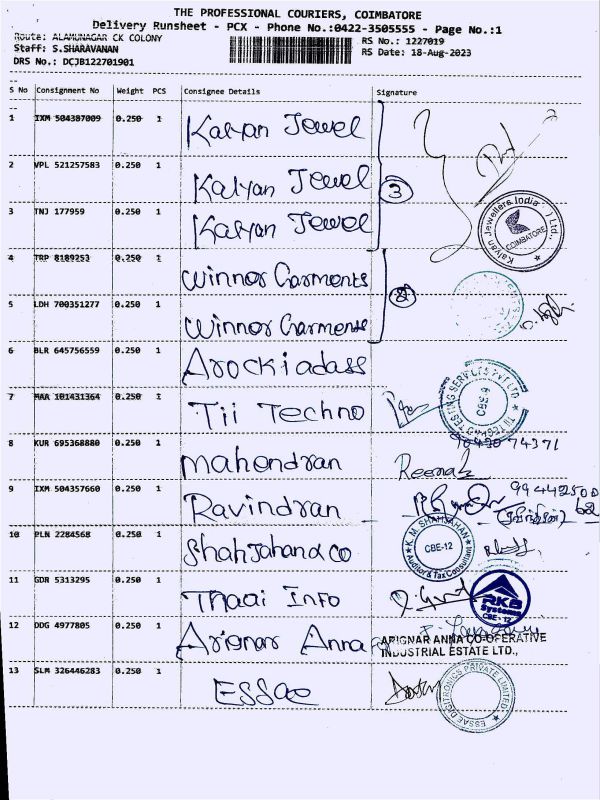 THE PROFESSIONAL COURIERS, COIMBATORE
Delivery Runsheet - PCX - Phone No.:0422-3505555 - Page No.:1
Route: ALAMUNAGAR CK COLONY
RS No.: 1227019
Staff: S.SHARAVANAN
RS Date: 18-Aug-2023
DRS No.: DCJB122701901
S No Consignment No Weight PCS Consignee Details Signature
1 IXM 504387009 0.250 1 Kalyan Jewel
2 VPL 521257583 0.250 1 Kalyan Jewel
3
3 TNJ 177959 0.250 1 Kalyan Jewel
Kalyan Jewellers India Ltd., COIMBATORE
4 TRP 8189253 0.250 1 Winnor Garments
5 LDH 700351277 0.250 1 Winnor Garments
6 BLR 645756559 0.250 1 Arockiadass
7 MAA 101431364 0.250 1 Tii Techno
TII TECHNO TESTING SERVICES PVT LTD. CBE-9
74371
8 KUR 695368880 0.250 1 mahendran
9 IXM 504357660 0.250 1 Ravindran
10 PLN 2284568 0.250 1 Shah Jahan & CO
K.M. SHAHJAHAN Auditor & Tax Consultant CBE-12
11 GDR 5313295 0.250 1 Thaai Info
RKB Systems CBE - 12
12 DDG 4977805 0.250 1 Arignar Anna
ARIGNAR ANNA CO-OPERATIVE
INDUSTRIAL ESTATE LTD.,
13 SLM 326446283 0.250 1 ESSae
ESSAE DIGITRONICS PRIVATE LIMITED